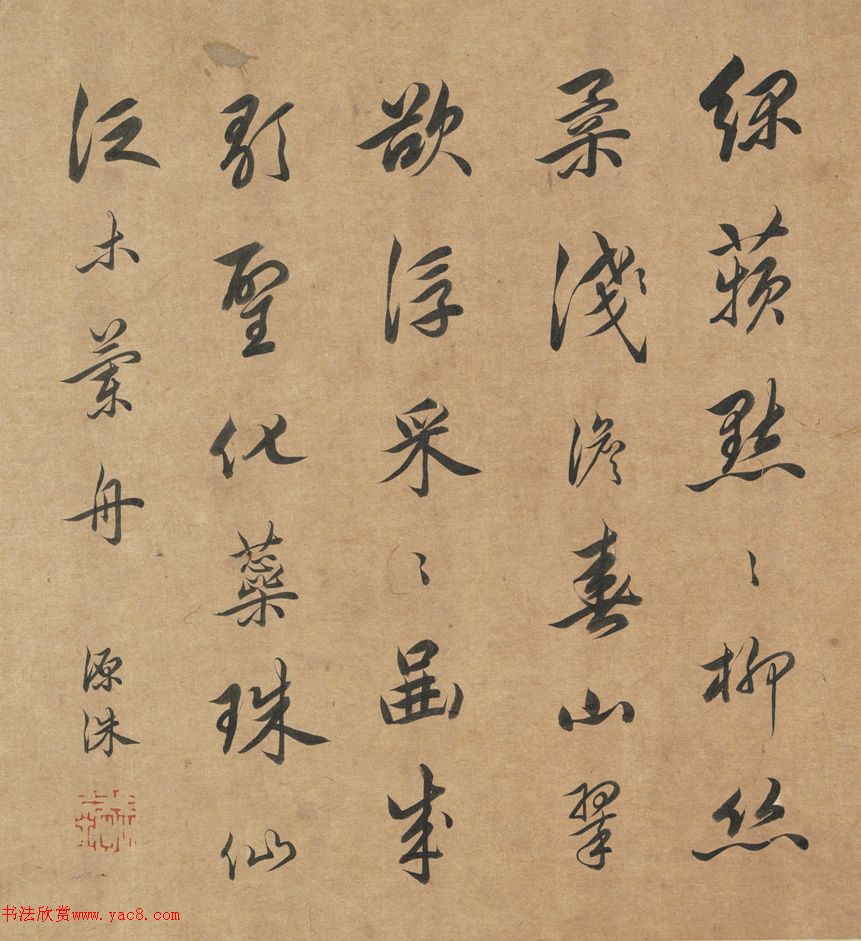 綠蘋點〻柳絲
柔淺澹春山翠
欲浮采〻罷成
歌聖化蘂珠仙
泛木蘭舟
源洙
书法欣赏www.yac8.com